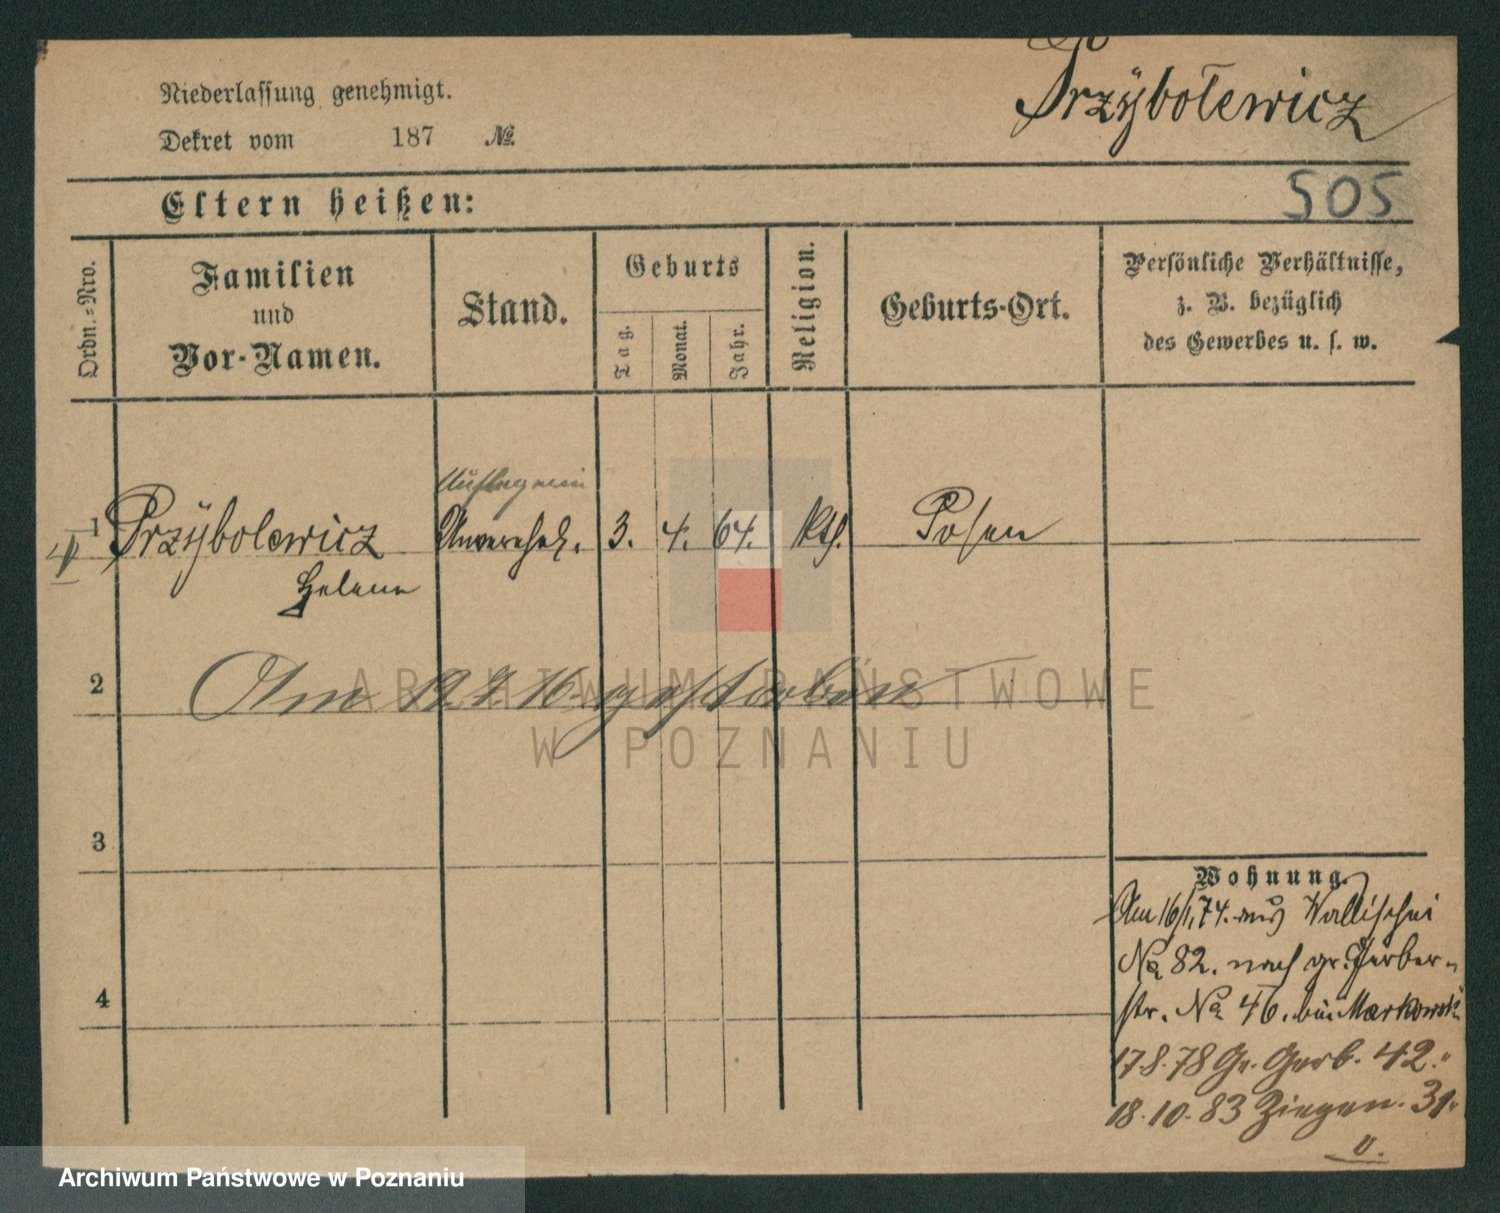 Przÿbolewicz
Niederlassung genehmigt.
Dekret vom 187 №
505
Eltern heißen:
Ordn.-Nro.
Familien
und
Vor-Namen.
Stand.
Geburts
Tag.
Monat.
Jahr.
Religion.
Geburts-Ort.
Persönliche Verhältnisse,
z. B. bezüglich
des Gewerbes u. s. w.
1 Przÿbolewicz 3. 4. 64. Kth. Posen
Helene
2 Am 12.7.16. gestorben
ARCHIWUM PAŃSTWOWE
W POZNANIU
3
4
Wohnung.
Am 16/1.74. aus Wallischei
No 82. nach gr. Gerber-
str. No 46. bei Markowski
17.8.78 Gr. Gerb. 42.
18.10.83 Ziegen. 31.
Archiwum Państwowe w Poznaniu